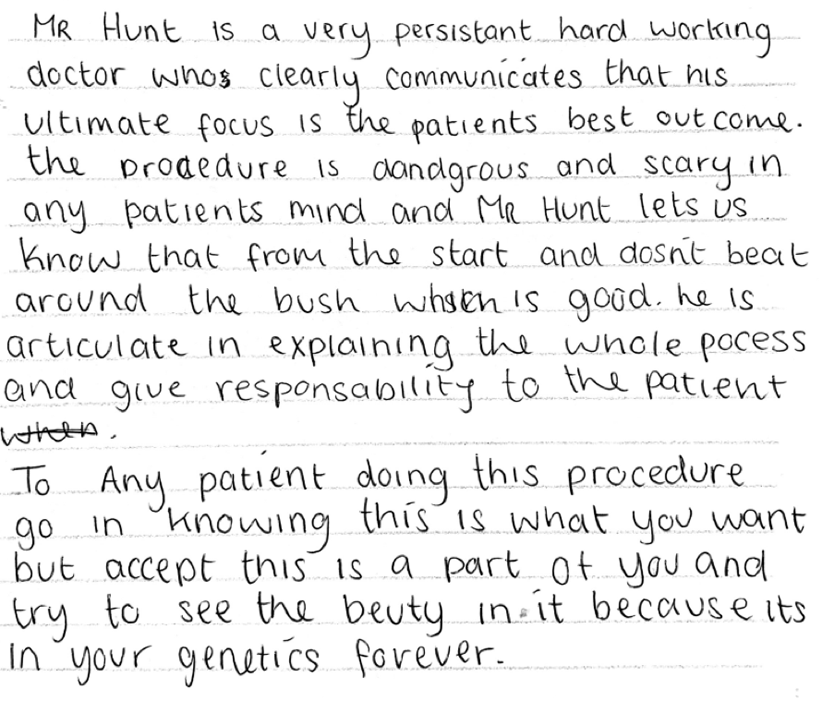 MR Hunt is a very persistant hard working
doctor whos clearly communicates that his
ultimate focus is the patients best outcome.
the procedure is dandgrous and scary in
any patients mind and MR Hunt lets us
know that from the start and dosn't beat
around the bush which is good. he is
articulate in explaining the whole pocess
and give responsability to the patient
when.
To Any patient doing this procedure
go in knowing this is what you want
but accept this is a part of you and
try to see the beuty in it because its
in your genetics forever.